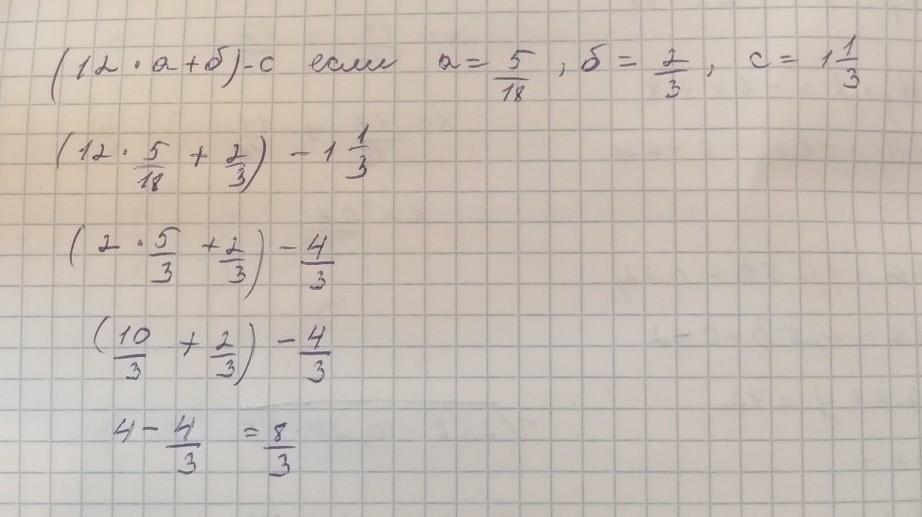 (12 · а + б) - с если а = 5/18, б = 2/3, с = 1 1/3
(12 · 5/18 + 2/3) - 1 1/3
(2 · 5/3 + 2/3) - 4/3
(10/3 + 2/3) - 4/3
4 - 4/3 = 8/3